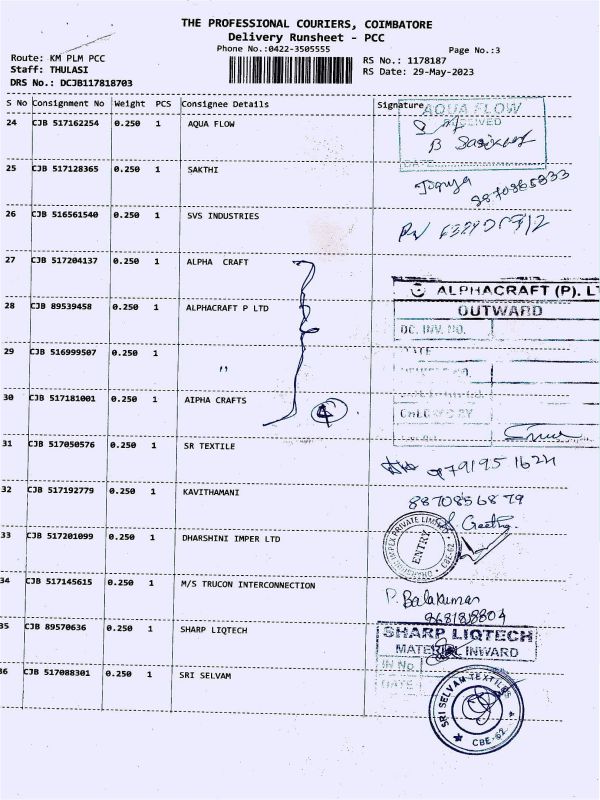 THE PROFESSIONAL COURIERS, COIMBATORE
Delivery Runsheet - PCC
Phone No.:0422-3505555
Page No.:3
Route: KM PLM PCC
Staff: THULASI
DRS No.: DCJB117818703
RS No.: 1178187
RS Date: 29-May-2023
S No Consignment No Weight PCS Consignee Details Signature
24 CJB 517162254 0.250 1 AQUA FLOW
AQUA FLOW
RECEIVED
DATE
25 CJB 517128365 0.250 1 SAKTHI
26 CJB 516561540 0.250 1 SVS INDUSTRIES
27 CJB 517204137 0.250 1 ALPHA CRAFT
ALPHACRAFT (P). LT
OUTWARD
DC. INV. NO.
28 CJB 89539458 0.250 1 ALPHACRAFT P LTD
29 CJB 516999507 0.250 1 "
30 CJB 517181001 0.250 1 AIPHA CRAFTS
4
31 CJB 517050576 0.250 1 SR TEXTILE
9791951624
32 CJB 517192779 0.250 1 KAVITHAMANI
8870856879
Geetha
33 CJB 517201099 0.250 1 DHARSHINI IMPER LTD
ENTRY
34 CJB 517145615 0.250 1 M/S TRUCON INTERCONNECTION
P. Balakumar
35 CJB 89570636 0.250 1 SHARP LIQTECH
SHARP LIQTECH
MATERIAL INWARD
IN No
DATE
36 CJB 517088301 0.250 1 SRI SELVAM
SRI SELVAM TEXTILES
CBE-62